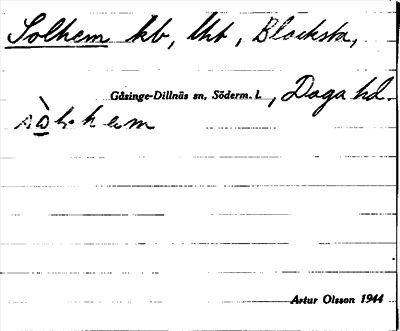 Solhem hb, Uht, Blacksta,
Gåsinge-Dillnäs sn, Söderm. l., Daga hd.
Artur Olsson 1944